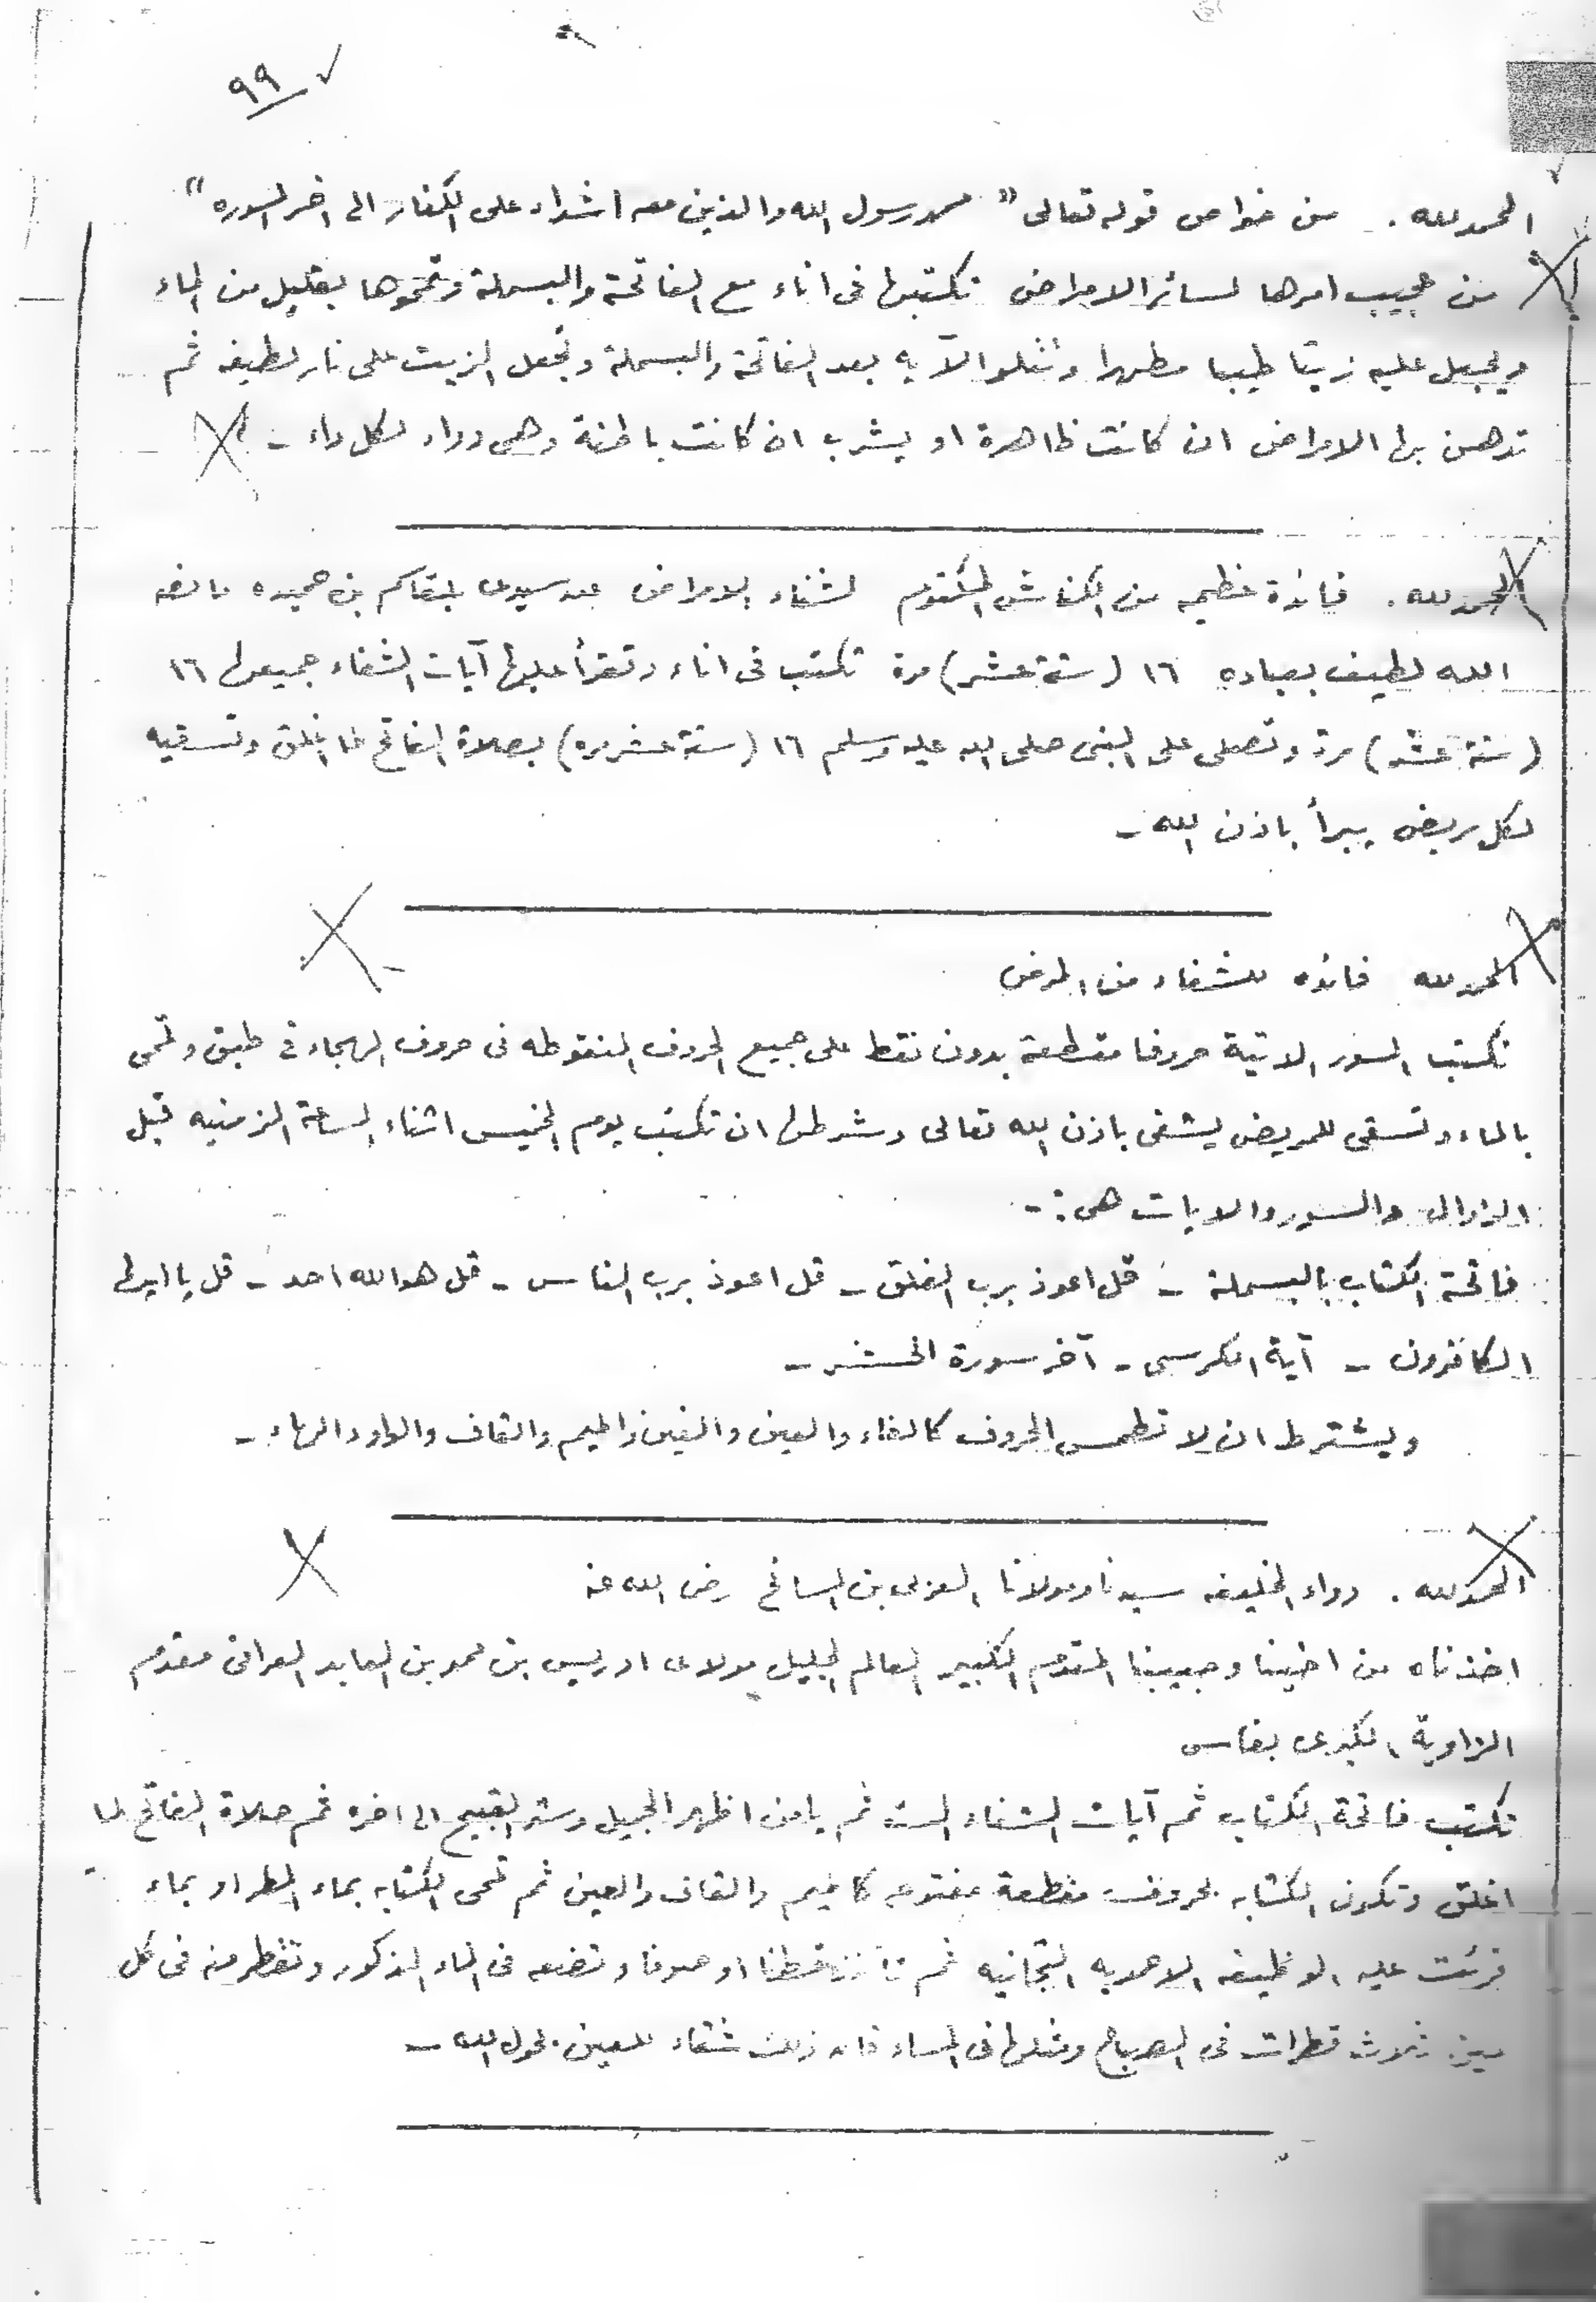 ٩٩
الحمد لله . من خواص قوله تعالى " محمد رسول الله والذين معه اشداء على الكفار الى اخر السوره "
من عجيب امرها لسائر الامراض تكتبها فى اناء مع الفاتحة والبسملة وتمحوها بقليل من الماء
ويجعل عليه زيتا طيبا مطهرا وتتلو الآيه بعد الفاتحة والبسملة وتجعل الزيت على نار لطيفه ثم
تدهن بها الامراض ان كانت ظاهرة او يشرب ان كانت باطنة وهى دواء لكل داء -
الحمد لله . فائدة عظيمه من الكناش المكتوم لشفاء الامراض عند سيدى بلقاسم بن حميده ما نصه
الله لطيف بعباده ١٦ (ستة عشر) مرة تكتب فى اناء وتقرأ عليها آيات الشفاء جميعها ١٦
(ستة عشر) مرة وتصلى على النبى صلى الله عليه وسلم ١٦ (ستة عشر مره) بصلاة الفاتح لما اغلق وتسقيه
لكل مريض يبرأ باذن الله -
الحمد لله فائده للشفاء من المرض
تكتب السور الاتية حروفا مقطعة بدون نقط على جميع الحروف المنقوطه فى حروف الهجاء فى طبق وتمحى
بالماء وتسقى للمريض يشفى باذن الله تعالى وشرطها ان تكتب يوم الخميس اثناء الساعة الزمنيه قبل
الزوال والسور والايات هى : -
فاتحة الكتاب بالبسملة - قل اعوذ برب الفلق - قل اعوذ برب الناس - قل هو الله احد - قل يا ايها
الكافرون - آية الكرسى - آخر سورة الحشر -
ويشترط ان لا تطمس الحروف كالفاء والعين والغين والميم والقاف والواو والهاء -
الحمد لله . دواء الخليفه سيدنا ومولانا العربى بن السائح رضى الله عنه
اخذناه من اخينا وحبيبنا المقدم الكبير العالم الجليل مولاى ادريس بن محمد بن العابد العراقى مقدم
الزاوية الكبرى بفاس
تكتب فاتحة الكتاب ثم آيات الشفاء الست ثم يا من اظهر الجميل وستر القبيح الى اخره ثم صلاة الفاتح لما
اغلق وتكون الكتابه بحروف مقطعة مفتوحه كالميم والقاف والعين ثم تمحى الكتابه بماء المطر او بماء
قرئت عليه الوظيفه الاحمديه التجانيه ثم تأخذ قطنا او صوفا وتضعه فى الماء المذكور وتقطر منه فى كل
عين ثلاث قطرات فى الصباح ومثلها فى المساء فان ذلك شفاء للعين بحول الله -